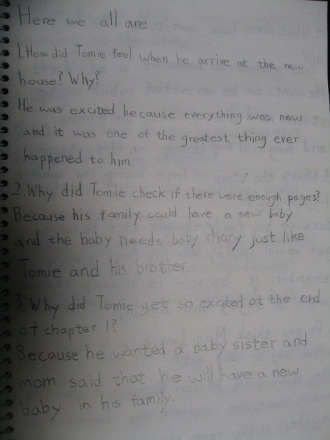 Here we all are
1. How did Tomie feel when he arrive at the new
house? Why?
He was excited because everything was new
and it was one of the greatest thing ever
happened to him
2. Why did Tomie check if there were enough pages?
Because his family could have a new baby
and the baby needs baby diary just like
Tomie and his brother
3. Why did Tomie get so excited at the end
of chapter 1?
Because he wanted a baby sister and
mom said that he will have a new
baby in his family.